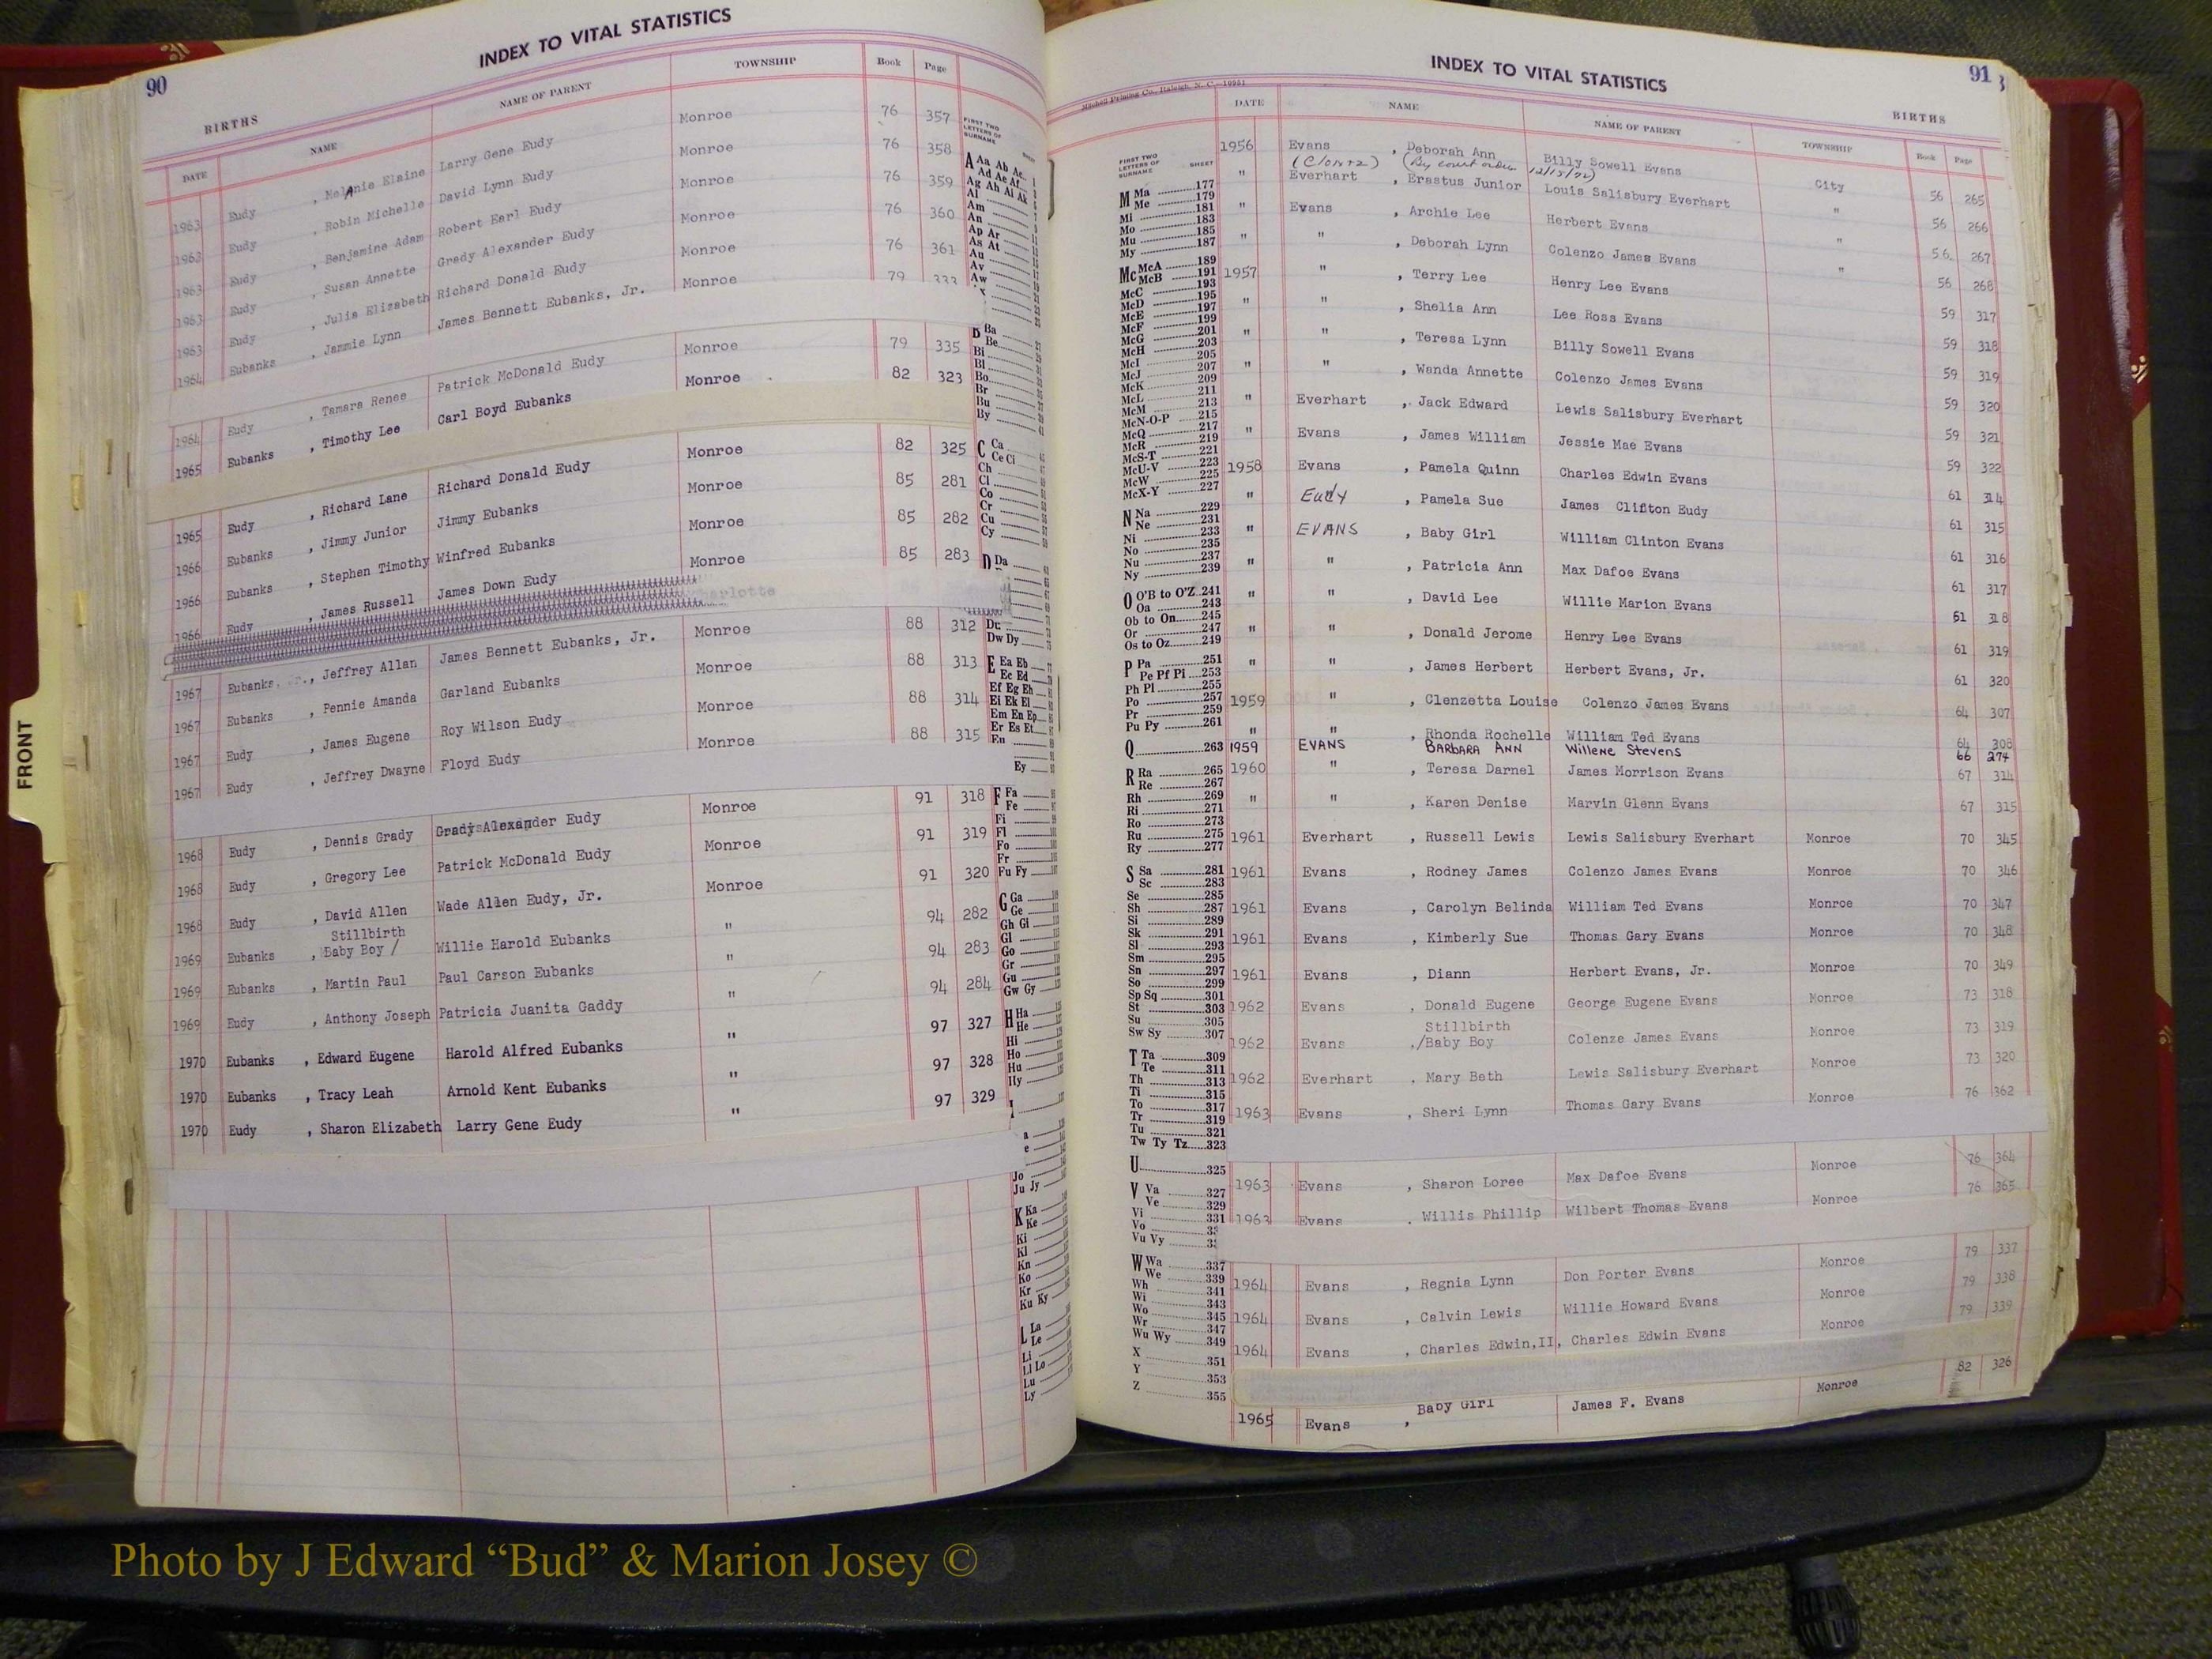 90
INDEX TO VITAL STATISTICS
BIRTHS
DATE NAME NAME OF PARENT TOWNSHIP Book Page
1963 Eudy , Melanie Elaine Larry Gene Eudy Monroe 76 357
1963 Eudy , Robin Michelle David Lynn Eudy Monroe 76 358
1963 Eudy , Benjamine Adam Robert Earl Eudy Monroe 76 359
1963 Eudy , Susan Annette Grady Alexander Eudy Monroe 76 360
1963 Eudy , Julia Elizabeth Richard Donald Eudy Monroe 76 361
1964 Eubanks , Jammie Lynn James Bennett Eubanks, Jr. Monroe 79 333
1964 Eudy , Tamara Renee Patrick McDonald Eudy Monroe 79 335
1965 Eubanks , Timothy Lee Carl Boyd Eubanks Monroe 82 323
1965 Eudy , Richard Lane Richard Donald Eudy Monroe 82 325
1966 Eubanks , Jimmy Junior Jimmy Eubanks Monroe 85 281
1966 Eubanks , Stephen Timothy Winfred Eubanks Monroe 85 282
1966 Eudy , James Russell James Down Eudy Monroe 85 283
1967 Eubanks , Jeffrey Allan James Bennett Eubanks, Jr. Monroe 88 312
1967 Eubanks , Pennie Amanda Garland Eubanks Monroe 88 313
1967 Eudy , James Eugene Roy Wilson Eudy Monroe 88 314
1967 Eudy , Jeffrey Dwayne Floyd Eudy Monroe 88 315
1968 Eudy , Dennis Grady Grady Alexander Eudy Monroe 91 318
1968 Eudy , Gregory Lee Patrick McDonald Eudy Monroe 91 319
1968 Eudy , David Allen Wade Allen Eudy, Jr. Monroe 91 320
Stillbirth
1969 Eubanks , Baby Boy / Willie Harold Eubanks " 94 282
1969 Eubanks , Martin Paul Paul Carson Eubanks " 94 283
1969 Eudy , Anthony Joseph Patricia Juanita Gaddy " 94 284
1970 Eubanks , Edward Eugene Harold Alfred Eubanks " 97 327
1970 Eubanks , Tracy Leah Arnold Kent Eubanks " 97 328
1970 Eudy , Sharon Elizabeth Larry Gene Eudy " 97 329
FIRST TWO
LETTERS OF
SURNAME
A Aa Ab Ac
Ad Ae Af
Ag Ah Ai Ak
Al
Am
An
Ap Ar
As At
Au
Av
Aw
Ba
Be
Bi
Bl
Bo
Br
Bu
By
C Ca
Ce Ci
Ch
Cl
Co
Cr
Cu
Cy
D Da
Dw Dy
E Ea Eb
Ec Ed
Ef Eg Eh
Ei Ek El
Em En Ep
Er Es Et
Eu
Ey
F Fa
Fe
Fi
Fl
Fo
Fr
Fu Fy
G Ga
Ge
Gh Gi
Gl
Go
Gr
Gu
Gw Gy
H Ha
He
Hi
Ho
Hu
Hy
Jo
Ju Jy
K Ka
Ke
Ki
Kl
Kn
Ko
Kr
Ku Ky
L La
Le
Li
Ll Lo
Lu
Ly
91
INDEX TO VITAL STATISTICS
Mitchell Printing Co., Raleigh, N. C.
BIRTHS
DATE NAME NAME OF PARENT TOWNSHIP Book Page
1956 Evans , Deborah Ann Billy Sowell Evans City 56 265
(Clontz) (By court order 12/15/72)
" Everhart , Erastus Junior Louis Salisbury Everhart " 56 266
" Evans , Archie Lee Herbert Evans " 56 267
" " , Deborah Lynn Colenzo James Evans " 56 268
1957 " , Terry Lee Henry Lee Evans 59 317
" " , Shelia Ann Lee Ross Evans 59 318
" " , Teresa Lynn Billy Sowell Evans 59 319
" " , Wanda Annette Colenzo James Evans 59 320
" Everhart , Jack Edward Lewis Salisbury Everhart 59 321
" Evans , James William Jessie Mae Evans 59 322
1958 Evans , Pamela Quinn Charles Edwin Evans 61 314
" Eudy , Pamela Sue James Clifton Eudy 61 315
" EVANS , Baby Girl William Clinton Evans 61 316
" " , Patricia Ann Max Dafoe Evans 61 317
" " , David Lee Willie Marion Evans 61 318
" " , Donald Jerome Henry Lee Evans 61 319
" " , James Herbert Herbert Evans, Jr. 61 320
1959 " , Clenzetta Louise Colenzo James Evans 64 307
" " , Rhonda Rochelle William Ted Evans 64 308
1959 EVANS BARBARA ANN Willene Stevens 66 274
1960 " , Teresa Darnel James Morrison Evans 67 314
" " , Karen Denise Marvin Glenn Evans 67 315
1961 Everhart , Russell Lewis Lewis Salisbury Everhart Monroe 70 345
1961 Evans , Rodney James Colenzo James Evans Monroe 70 346
1961 Evans , Carolyn Belinda William Ted Evans Monroe 70 347
1961 Evans , Kimberly Sue Thomas Gary Evans Monroe 70 348
1961 Evans , Diann Herbert Evans, Jr. Monroe 70 349
1962 Evans , Donald Eugene George Eugene Evans Monroe 73 318
Stillbirth
1962 Evans ,/Baby Boy Colenze James Evans Monroe 73 319
1962 Everhart , Mary Beth Lewis Salisbury Everhart Monroe 73 320
1963 Evans , Sheri Lynn Thomas Gary Evans Monroe 76 362
1963 Evans , Sharon Loree Max Dafoe Evans Monroe 76 364
1963 Evans , Willis Phillip Wilbert Thomas Evans Monroe 76 365
1964 Evans , Regnia Lynn Don Porter Evans Monroe 79 337
1964 Evans , Calvin Lewis Willie Howard Evans Monroe 79 338
1964 Evans , Charles Edwin,II, Charles Edwin Evans Monroe 79 339
1965 Evans , Baby Girl James F. Evans Monroe 82 326
FIRST TWO
LETTERS OF
SURNAME SHEET
M Ma 177
Me 179
Mi 181
Mo 183
Mu 185
My 187
Mc McA 189
McB 191
McC 193
McD 195
McE 197
McF 199
McG 201
McH 203
McI 205
McJ 207
McK 209
McL 211
McM 213
McN-O-P 215
McQ 217
McR 219
McS-T 221
McU-V 223
McW 225
McX-Y 227
N Na 229
Ne 231
Ni 233
No 235
Nu 237
Ny 239
O O'B to O'Z 241
Oa 243
Ob to On 245
Or 247
Os to Oz 249
P Pa 251
Pe Pf Pi 253
Ph Pl 255
Po 257
Pr 259
Pu Py 261
Q 263
R Ra 265
Re 267
Rh 269
Ri 271
Ro 273
Ru 275
Ry 277
S Sa 281
Sc 283
Se 285
Sh 287
Si 289
Sk 291
Sl 293
Sm 295
Sn 297
So 299
Sp Sq 301
St 303
Su 305
Sw Sy 307
T Ta 309
Te 311
Th 313
Ti 315
To 317
Tr 319
Tu 321
Tw Ty Tz 323
U 325
V Va 327
Ve 329
Vi 331
Vo
Vu Vy
W Wa 337
We 339
Wh 341
Wi 343
Wo 345
Wr 347
Wu Wy 349
X 351
Y 353
Z 355
FRONT
Photo by J Edward “Bud” & Marion Josey ©